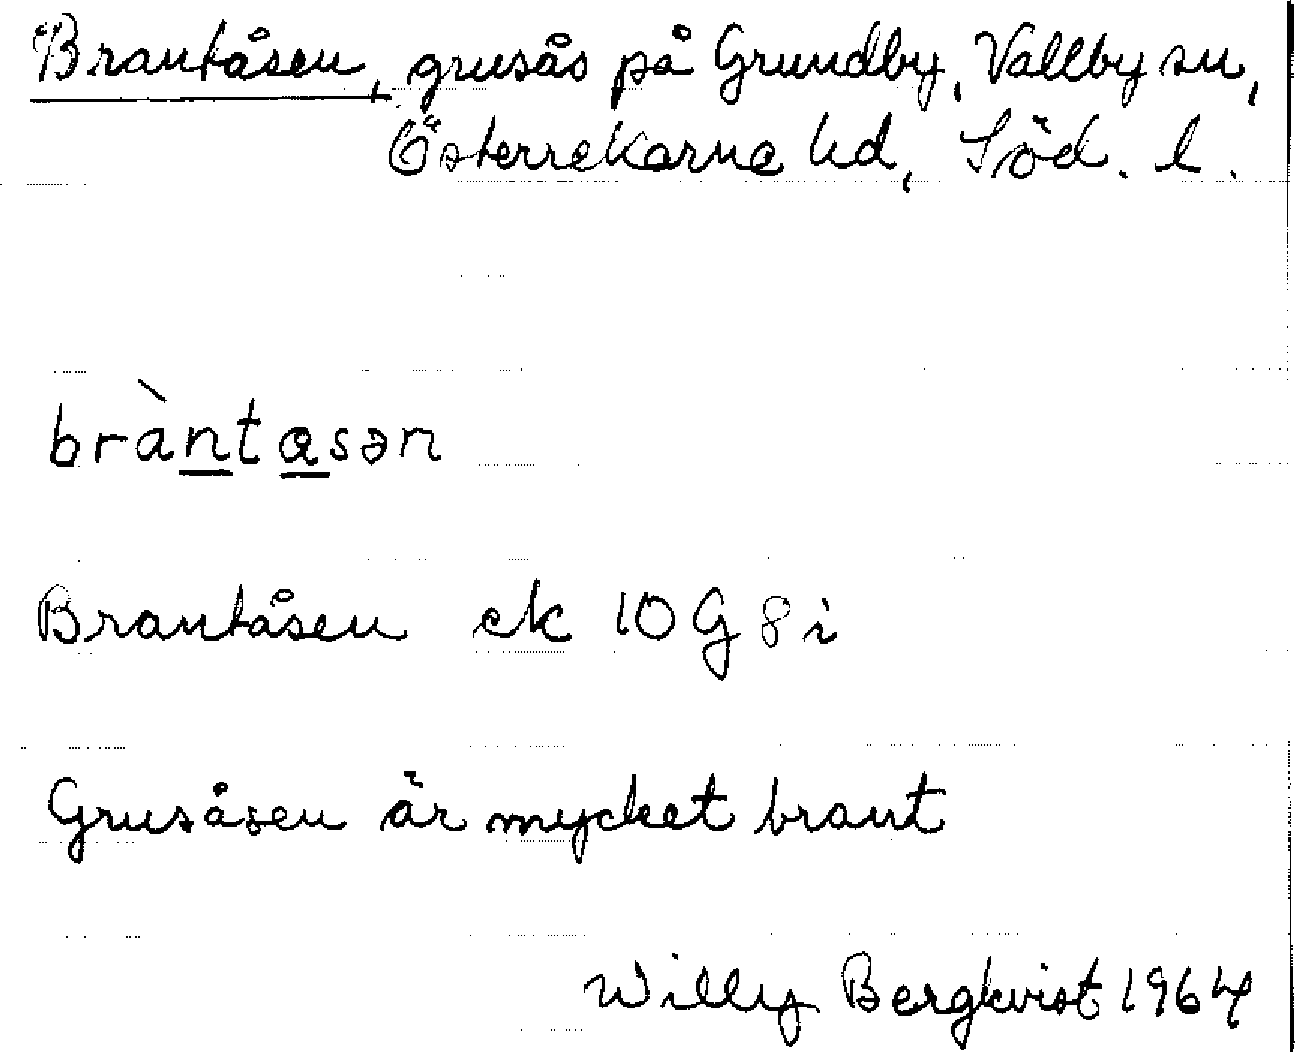 Brantåsen, grusås på Grundby, Vallby sn,
Österrekarne hd, Söd. l.
bràntasən
Brantåsen ek 10 G 8 i
Grusåsen är mycket brant
Willy Bergkvist 1964